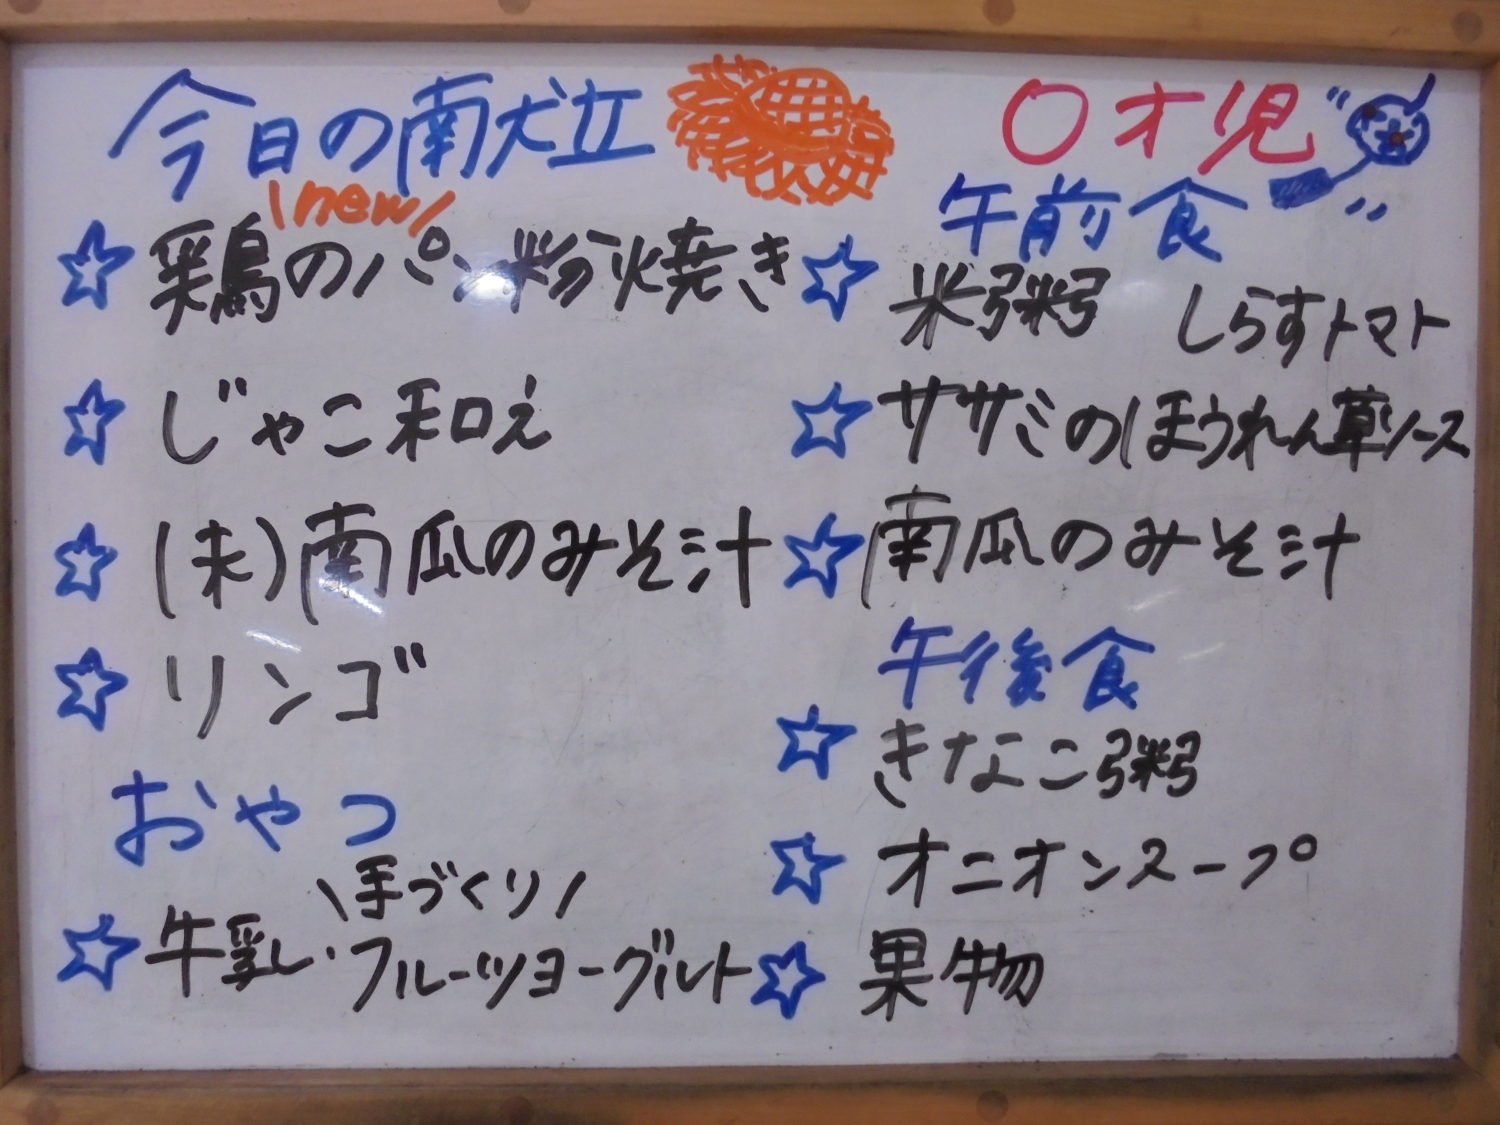 今日の献立
\new/
☆鶏のパン粉焼き
☆じゃこ和え
☆(未)南瓜のみそ汁
☆リンゴ
おやつ
\手づくり/
☆牛乳・フルーツヨーグルト
〇才児
午前食
☆米粥 しらすトマト
☆ササミのほうれん草ソース
☆南瓜のみそ汁
午後食
☆きなこ粥
☆オニオンスープ
☆果物